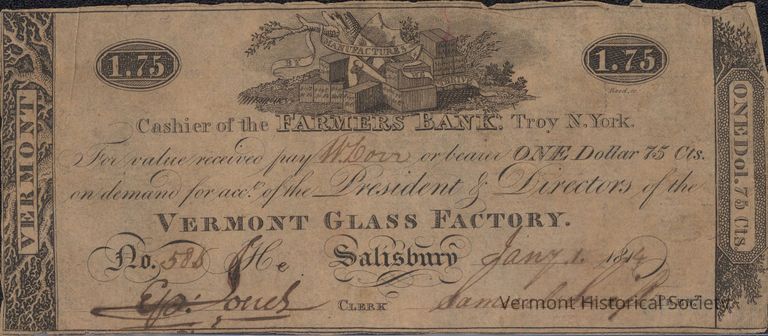 MANUFACTURES
1.75
1.75
VERMONT
Cashier of the FARMERS BANK: Troy N. York.
For value received pay or bearer ONE Dollar 75 Cts.
on demand for acct. of the President & Directors of the
VERMONT GLASS FACTORY.
No. 588 Salisbury Jany 1. 1814
CLERK
ONE Dol. 75 Cts
Vermont Historical Society